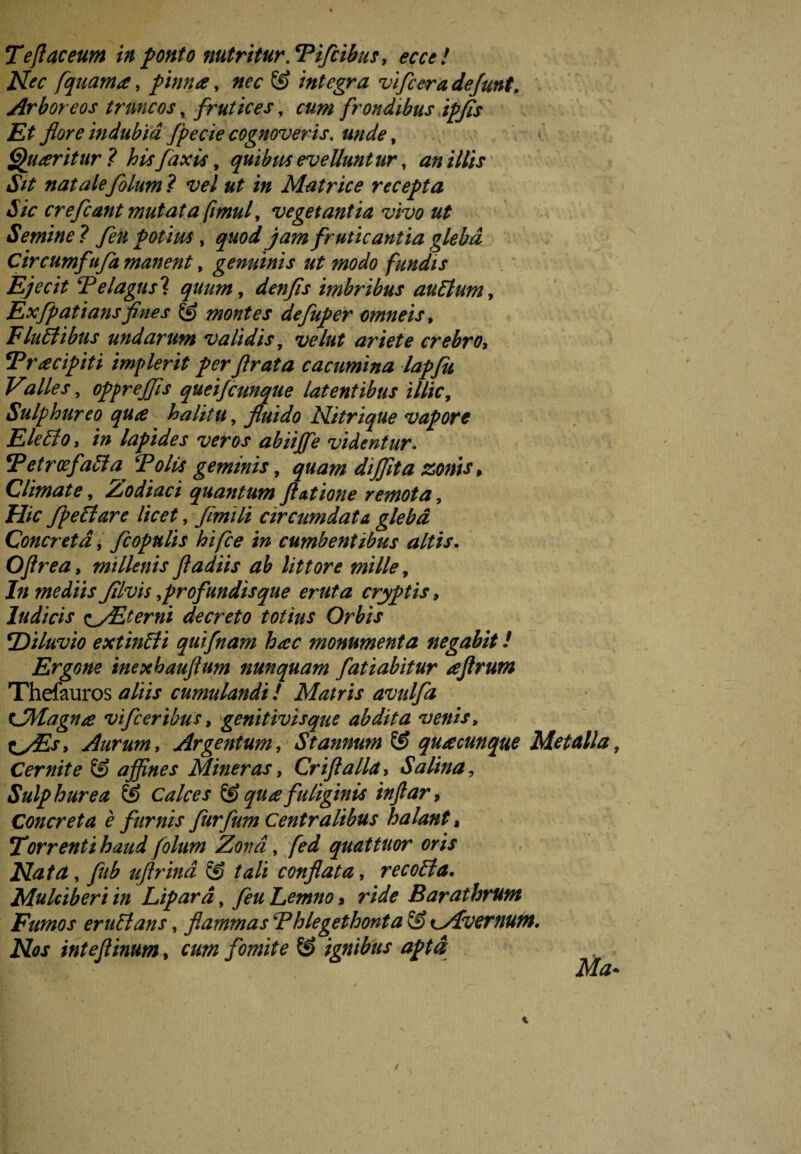 Teſtaceum in ponto nutritur. Piſcibus, ecce!
Nec ſquamæ, pinnæ, nec & integra viſcera deſunt.
Arboreos truncos, frutices, cum frondibus ipſis
Et flore indubiâ ſpecie cognoveris. unde,
Quæritur? his ſaxis, quibus evelluntur, an illis
Sit natale ſolum? vel ut in Matrice recepta
Sic creſcant mutata ſimul, vegetantia vivo ut
Semine? ſeu potius, quod jam fruticantia glebâ
Circumfuſa manent, genuinis ut modo fundis
Ejecit Pelagus? quum, denſis imbribus auctum,
Exſpatians fines & montes deſuper omneis,
Fluctibus undarum validis, velut ariete crebro,
Præcipiti implerit per ſtrata cacumina lapſu
Valles, oppreſſis queiſcunque latentibus illic,
Sulphureo quæ halitu, fluido Nitrique vapore
Electo, in lapides veros abiiſſe videntur.
Petrœfacta Polis geminis, quam diſſita zonis,
Climate, Zodiaci quantum ſtatione remota,
Hic ſpectare licet, ſimili circumdata glebâ
Concretâ, ſcopulis hiſce in cumbentibus altis.
Oſtrea, millenis ſtadiis ab littore mille,
In mediis ſilvis, profundisque eruta cryptis,
Iudicis Æterni decreto totius Orbis
Diluvio extincti quiſnam hæc monumenta negabit!
Ergone inexhauſtum nunquam ſatiabitur æſtrum
Theſauros aliis cumulandi! Matris avulſa
Magnæ viſceribus, genitivisque abdita venis,
Æs, Aurum, Argentum, Stannum & quæcunque Metalla,
Cernite & affines Mineras, Criſtalla, Salina,
Sulphurea & Calces & quæ fuliginis inſtar,
Concreta è furnis ſurſum Centralibus halant,
Torrenti haud ſolum Zonâ, ſed quattuor oris
Nata, ſub uſtrinâ & tali conflata, recocta.
Mulciberi in Liparâ, ſeu Lemno, ride Barathrum
Fumos eructans, flammas Phlegethonta & Avernum.
Nos inteſtinum, cum fomite & ignibus aptâ
Ma-